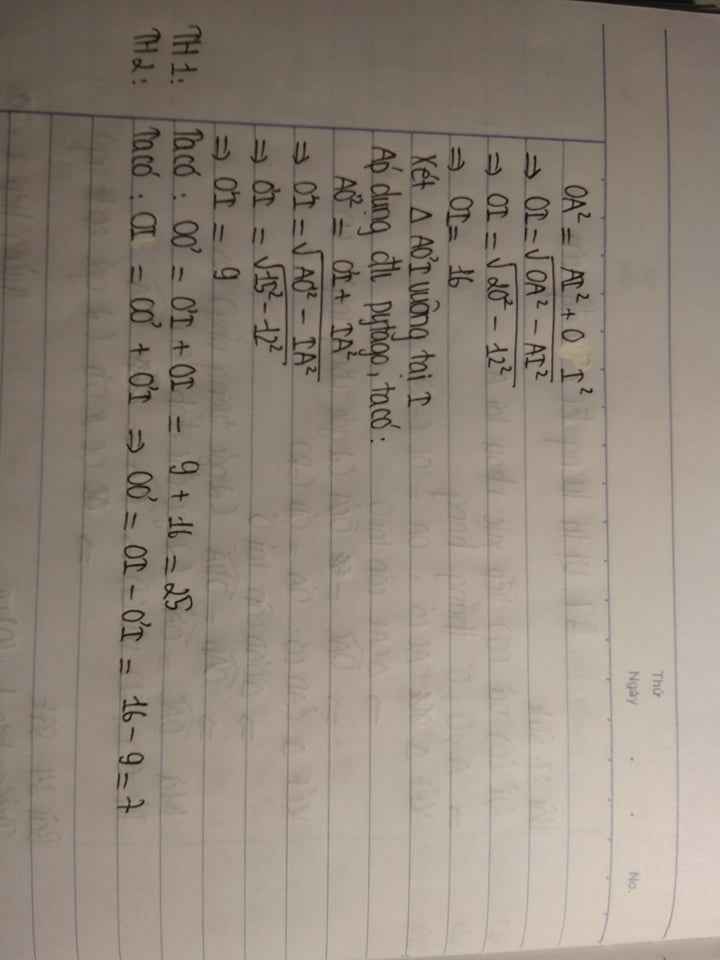 Thứ
Ngày . . No.
OA² = AI² + O I²
⇒ OI = √OA² − AI²
⇒ OI = √20² − 12²
⇒ OI = 16
Xét Δ AO'I vuông tại I
Áp dụng đlí pytago, ta có:
AO'² = O'I + IA²
⇒ O'I = √AO'² − IA²
⇒ O'I = √15² − 12²
⇒ O'I = 9
TH1: Ta có: OO' = O'I + OI = 9 + 16 = 25
TH2: Ta có: OI = OO' + O'I ⇒ OO' = OI − O'I = 16 − 9 = 7